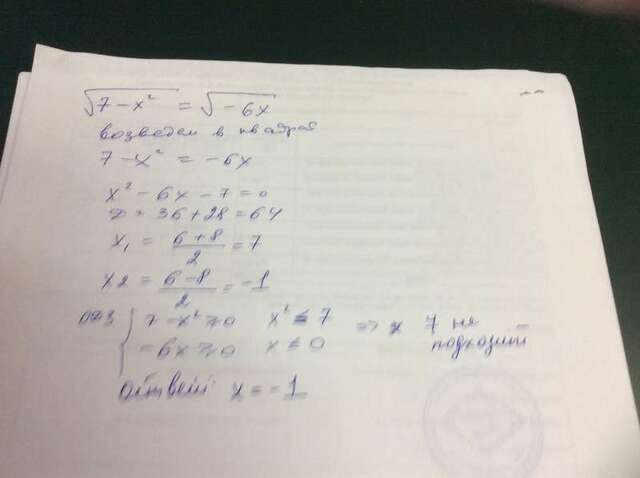 √7-x² = √-6x
возведем в квадрат
7-x² = -6x
x² - 6x - 7 = 0
D = 36 + 28 = 64
x₁ = (6+8)/2 = 7
x2 = (6-8)/2 = -1
ОДЗ { 7-x² ≥ 0 x² ≤ 7 => x 7 не подходит
-6x ≥ 0 x ≤ 0
ответ: x = -1